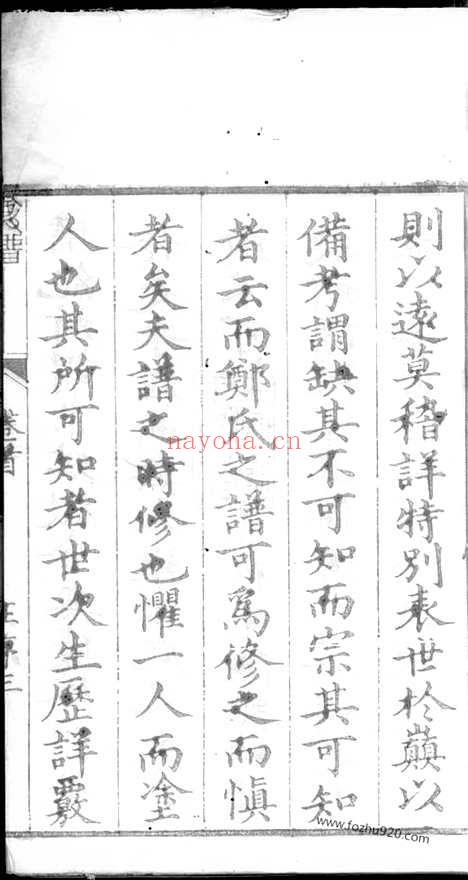 則以遠莫稽詳特別表世於巔以
備考謂缺其不可知而宗其可知
者云而鄭氏之譜可為修之而慎
者矣夫譜之時修也懼一人而塗
人也其所可知者世次生歷詳覈
譜
卷首
三
nayona.cn
www.fozhu920.com